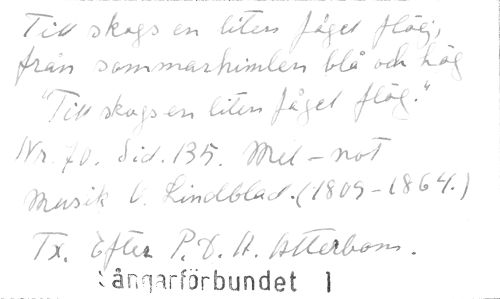 Till skogs en liten fågel flög,
från sommarhimlen blå och hög
"Till skogs en liten fågel flög."
Nr. 70. Sid. 135. Mel-not
Musik O. Lindblad. (1809-1864.)
Tx. Efter P.D.A. Atterbom.
Sångarförbundet